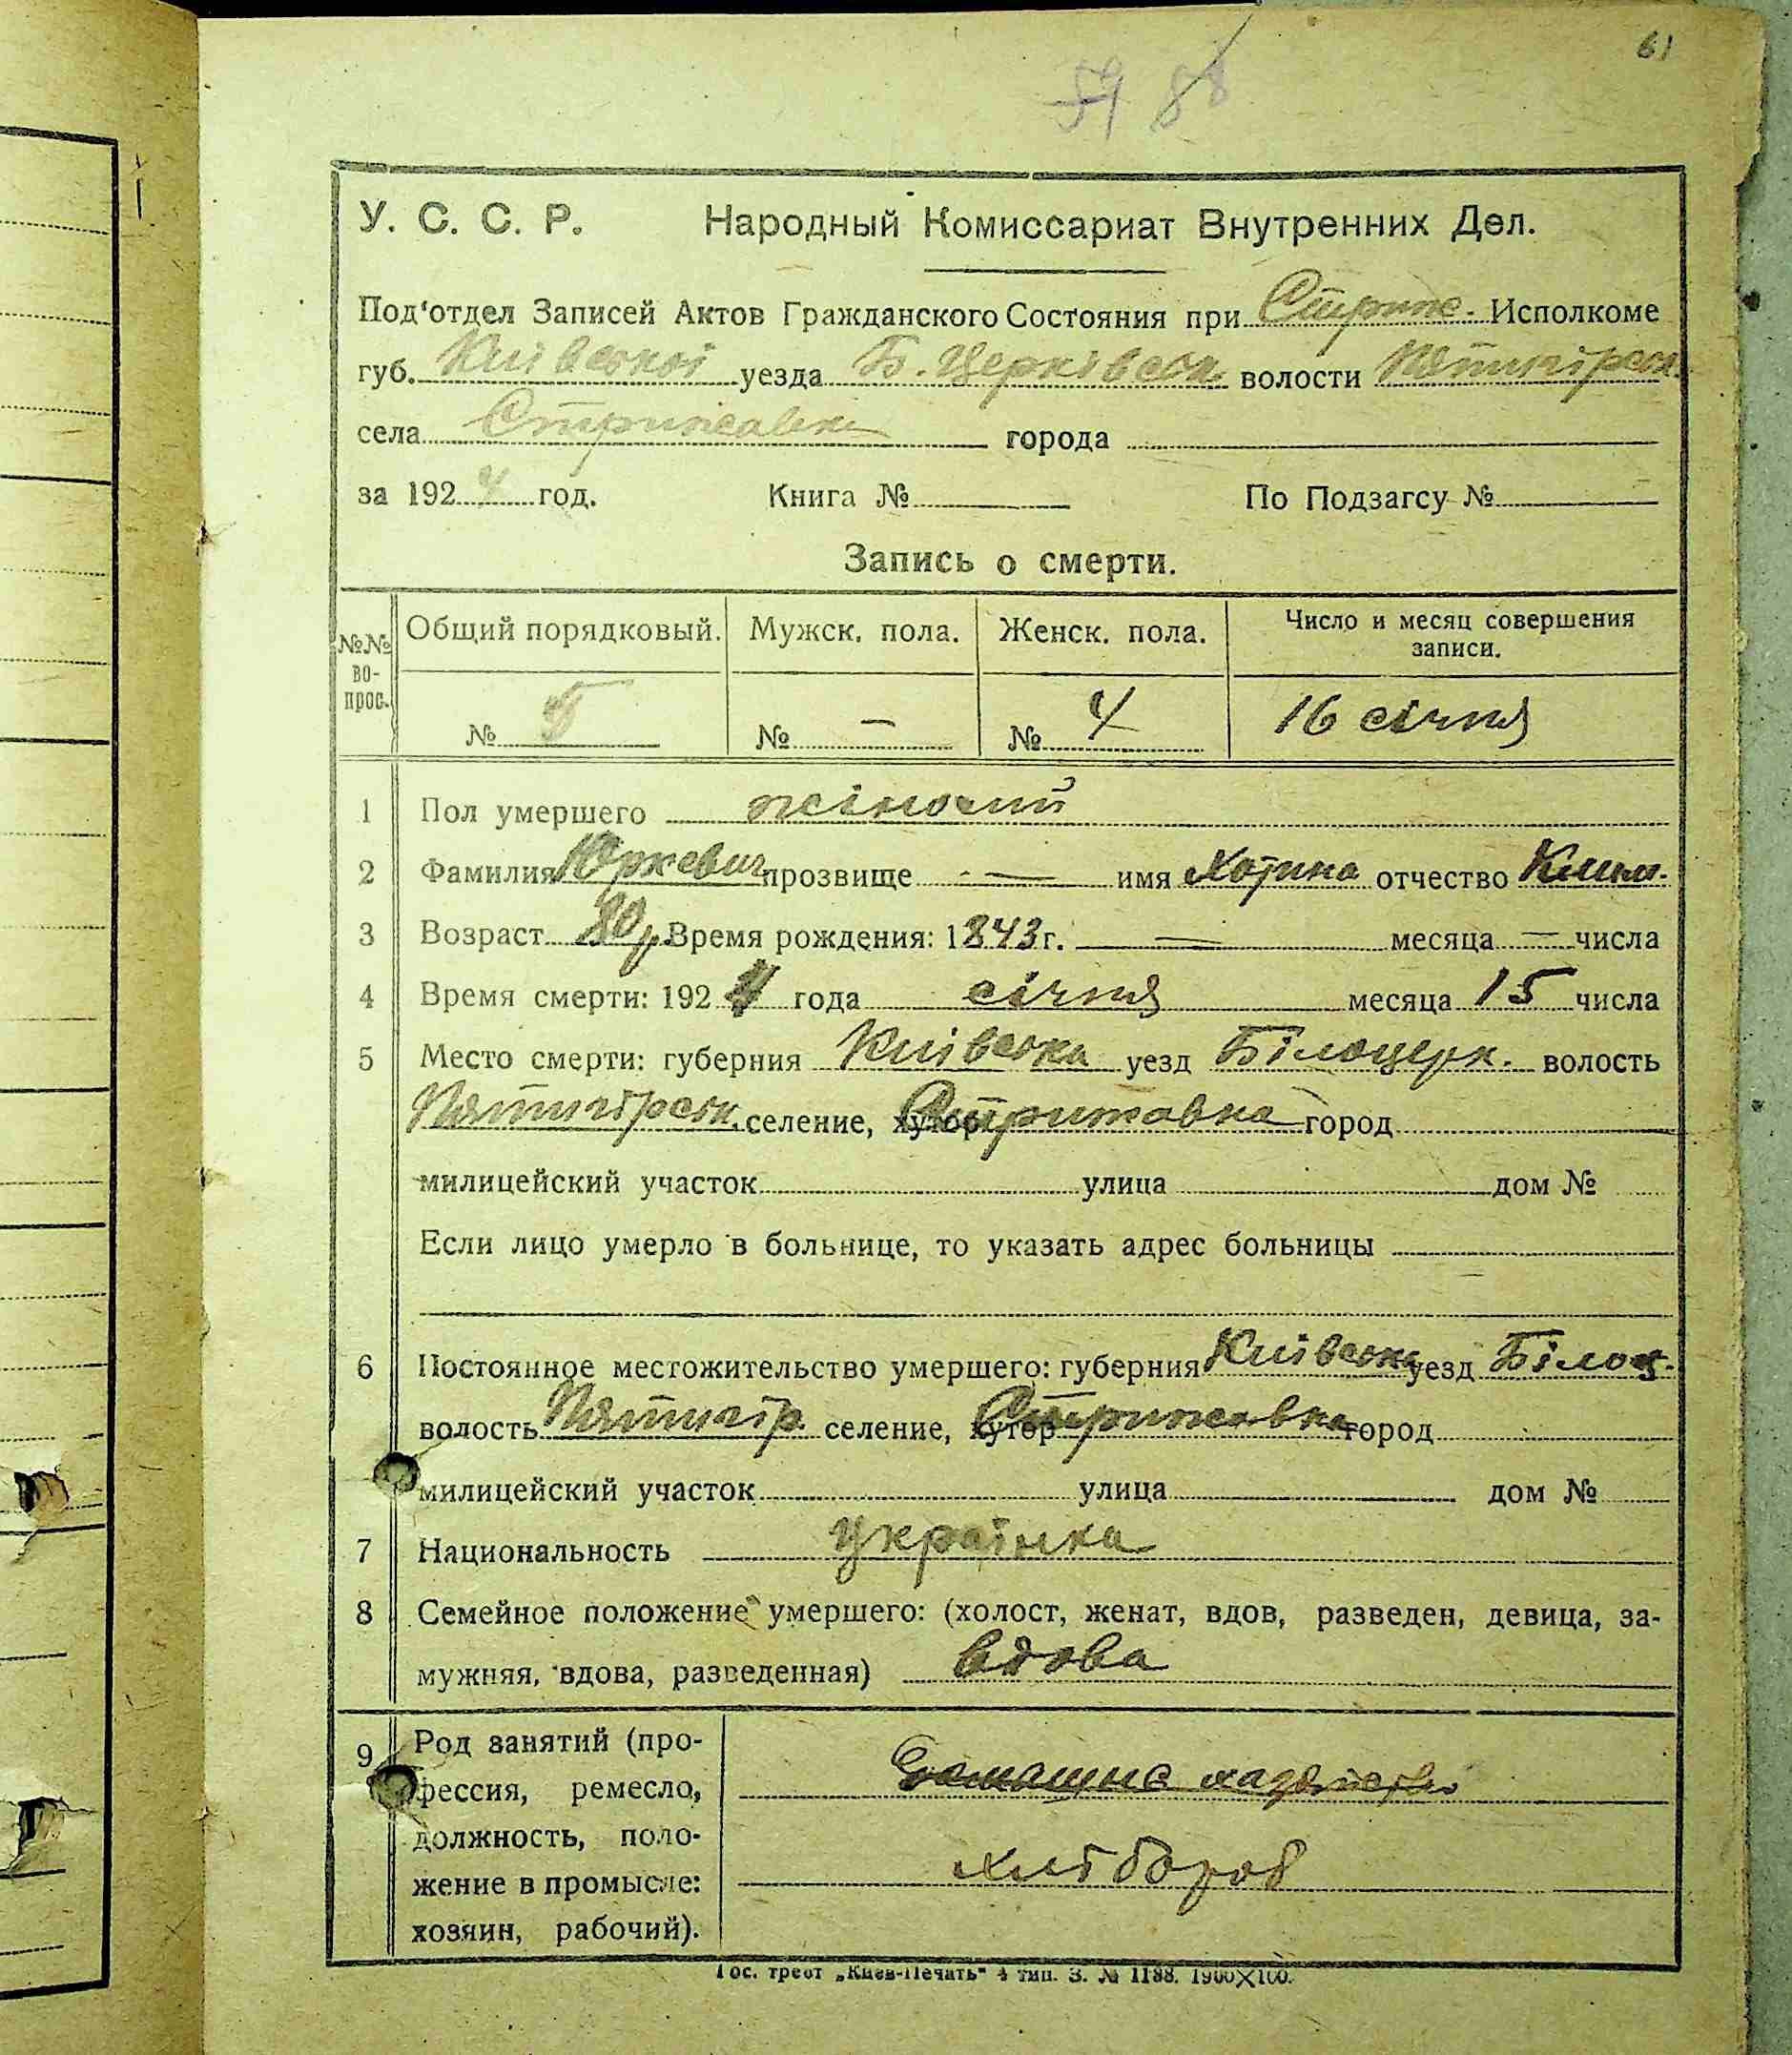 61
59 88
У. С. С. Р. Народный Комиссариат Внутренних Дел.
Под'отдел Записей Актов Гражданского Состояния при Стриж. Исполкоме
губ. Київської уезда Б. Церківськ. волости Пятигірськ.
села Стрижавки города
за 1924 год. Книга № По Подзагсу №
Запись о смерти.
№№ вопрос. Общий порядковый. Мужск. пола. Женск. пола. Число и месяц совершения записи.
№ 5 № — № 4 16 січня
1 Пол умершего жіночий
2 Фамилия Юркевич прозвище — имя отчество Клим.
3 Возраст 80 р. Время рождения: 1843 г. — месяца — числа
4 Время смерти: 1924 года січня месяца 15 числа
5 Место смерти: губерния Київська уезд Білоцерк. волость
Пятигірськ. селение, хутор Стрижавка город
милицейский участок улица дом №
Если лицо умерло в больнице, то указать адрес больницы
6 Постоянное местожительство умершего: губерния Київська уезд Білоц.
волость Пятигір. селение, хутор Стрижавка город
милицейский участок улица дом №
7 Национальность українка
8 Семейное положение умершего: (холост, женат, вдов, разведен, девица, за-
мужняя, вдова, разведенная) вдова
9 Род занятий (про-
фессия, ремесло,
должность, поло-
жение в промысле:
хозяин, рабочий).
хлібороб
Гос. трест „Киев-Печать" 4 тип. З. № 1188. 1900×100.